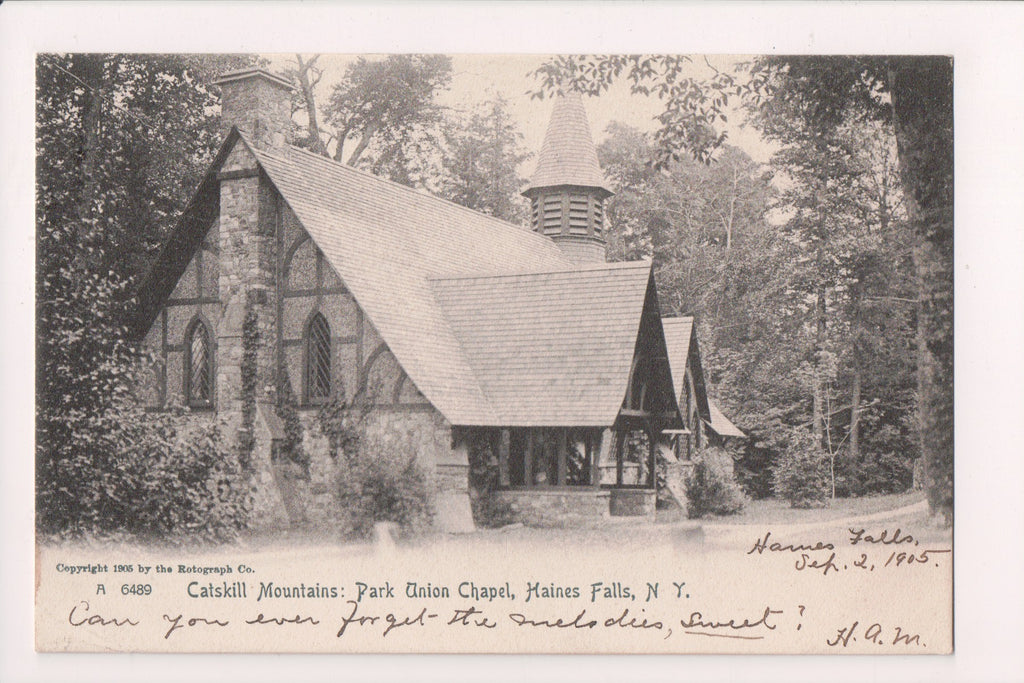 Haines Falls,
Sep. 2, 1905.
Copyright 1905 by the Rotograph Co.
A 6489 Catskill Mountains: Park Union Chapel, Haines Falls, N Y.
Can you ever forget the melodies, sweet?
H.A.M.